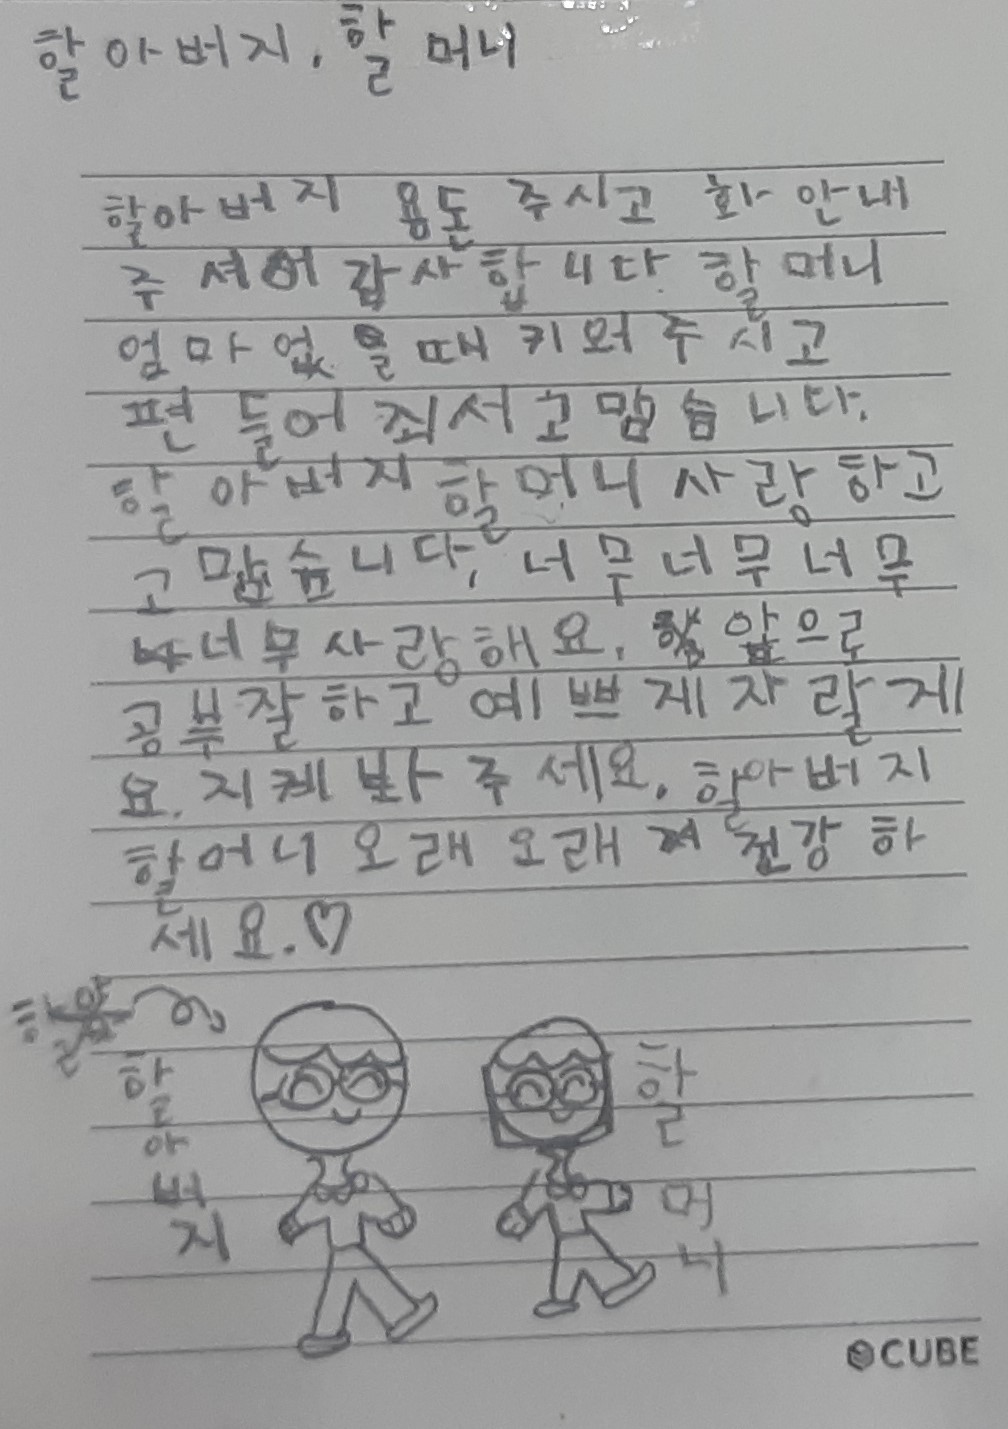 할아버지, 할머니
할아버지 용돈 주시고 화 안내
주셔어 감사합니다. 할머니
엄마 없을때 키워주시고
편 들어 줘서 고맙습니다.
할아버지 할머니 사랑하고
고맙습니다, 너무너무너무
너무사랑해요. 앞으로
공부잘하고 예쁘게 자랄게
요. 지켜봐 주세요. 할아버지
할머니 오래오래 건강하
세요.♡
할아버지
할머니
CUBE